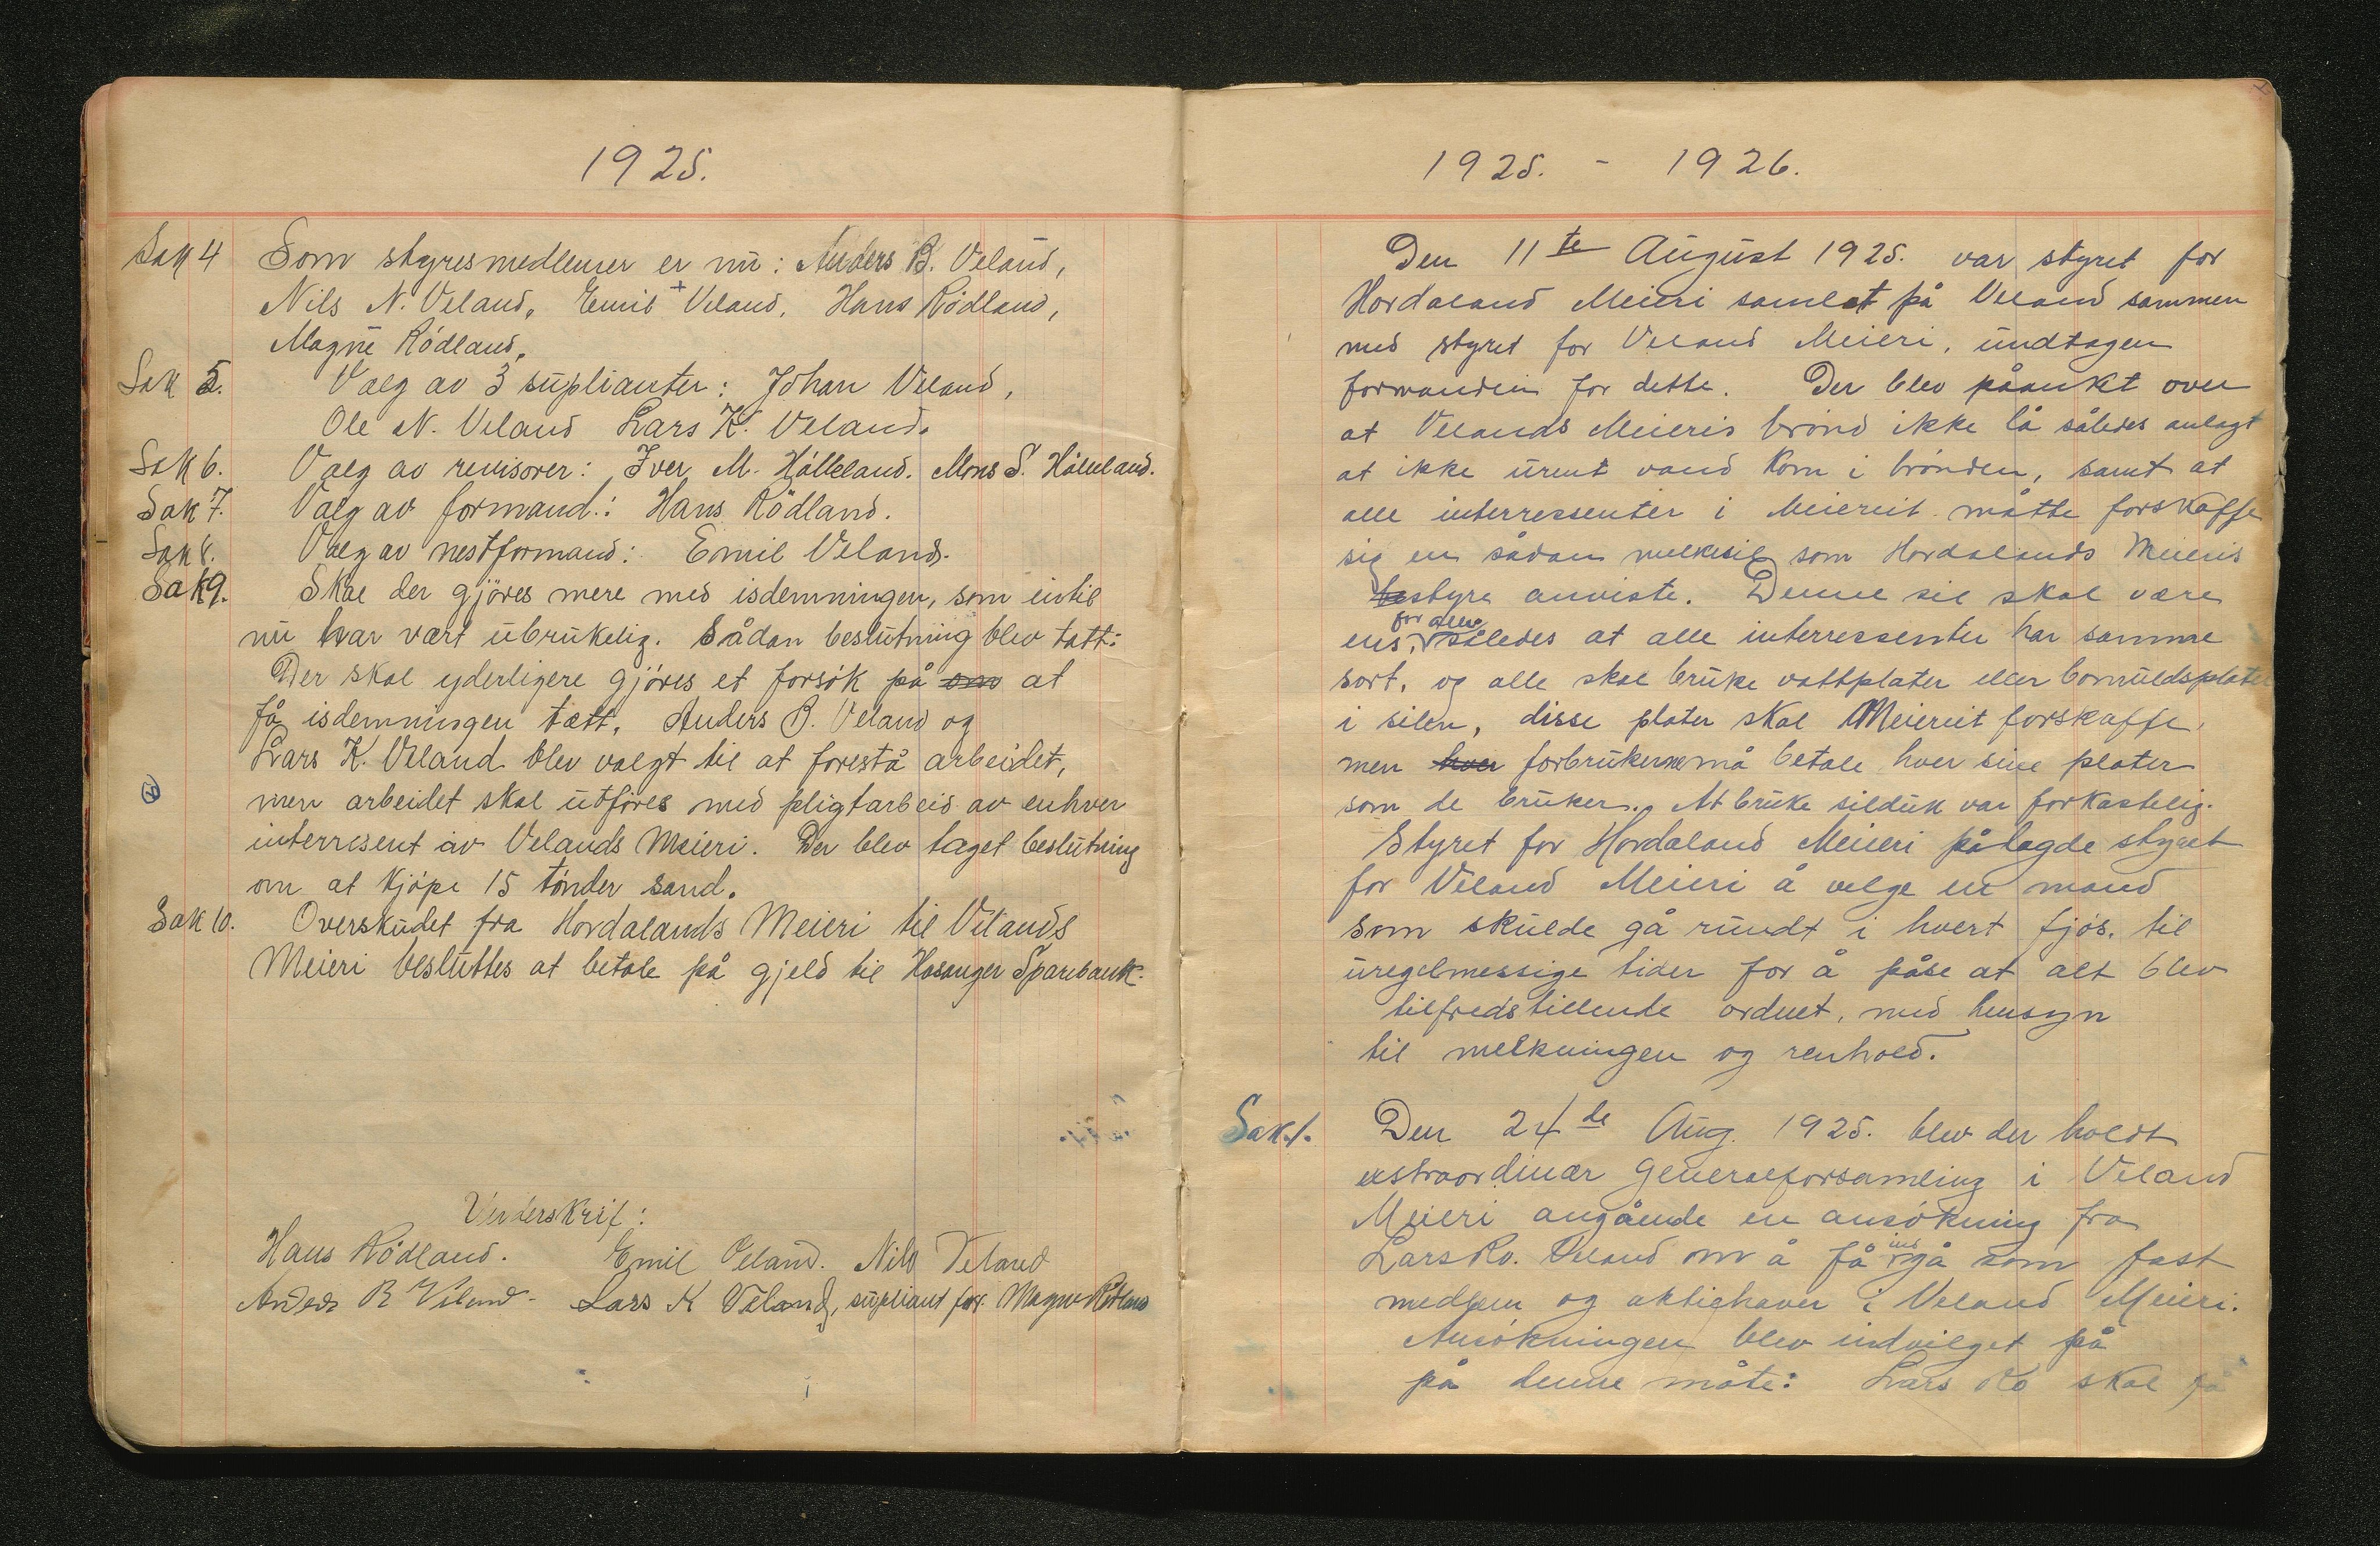 1925.
Sak 4 Som styresmedlemer er nu: Anders B. Veland,
Nils N. Veland, Emil Veland, Hans Rödland,
Magne Rödland.
Sak 5. Valg av 3 suplianter: Johan Veland,
Ole N. Veland Lars K. Veland.
Sak 6. Valg av revisorer: Iver M. Hölleland. Mons S. Hölleland.
Sak 7. Valg av formand: Hans Rödland.
Sak 8. Valg av nestformand: Emil Veland.
Sak 9. Skal der gjöres mere med isdemningen, som intil
nu har vært ubrukelig. Sådan beslutning blev tatt:
Der skal yderligere gjöres et forsök på om at
få isdemningen tætt. Anders B. Veland og
Lars K. Veland blev valgt til at forestå arbeidet,
men arbeidet skal utföres med pligtarbeid av enhver
interresent av Velands Meieri. Der blev taget beslutning
om at kjöpe 15 tönder sand.
Sak 10. Overskudet fra Hordalands Meieri til Velands
Meieri besluttes at betale på gjeld til Hosanger Sparebank.
Underskrif:
Hans Rödland. Emil Veland. Nils Veland
Anders B Veland. Lars K Veland, supliant for Magne Rödland
1925. - 1926.
Den 11te August 1925. var styret for
Hordaland Meieri samlet på Veland sammen
med styret for Veland Meieri, undtagen
formanden for dette. Der blev påankt over
at Velands Meieris brönd ikke lå således anlagt
at ikke urent vand kom i brönden, samt at
alle interressenter i Meieriet måtte forskaffe
sig en sådan melkesil som Hordalands Meieris
bestyre anviste. Denne sil skal være
ens for alle, således at alle interressenter har samme
sort, og alle skal bruke vattplater eller bomuldsplater
i silen, disse plater skal Meieriet forskaffe,
men hver forbrukerne må betale hver sine plater
som de bruker. At bruke silduk var forkastelig.
Styret for Hordaland Meieri pålagde styret
for Veland Meieri å velge en mand
som skulde gå rundt i hvert fjös, til
uregelmessige tider for å påse at alt blev
tilfredstillende ordnet, med hensyn
til melkningen og renhold.
Sak 1. Den 24de Aug. 1925. blev der holdt
ekstraordinær generalforsamling i Veland
Meieri angående en ansökning fra
Lars Ro. Veland om å få indgå som fast
medlem og aktiehaver i Veland Meieri.
Ansökningen blev indvilget på
på denne måte: Lars Ro skal få